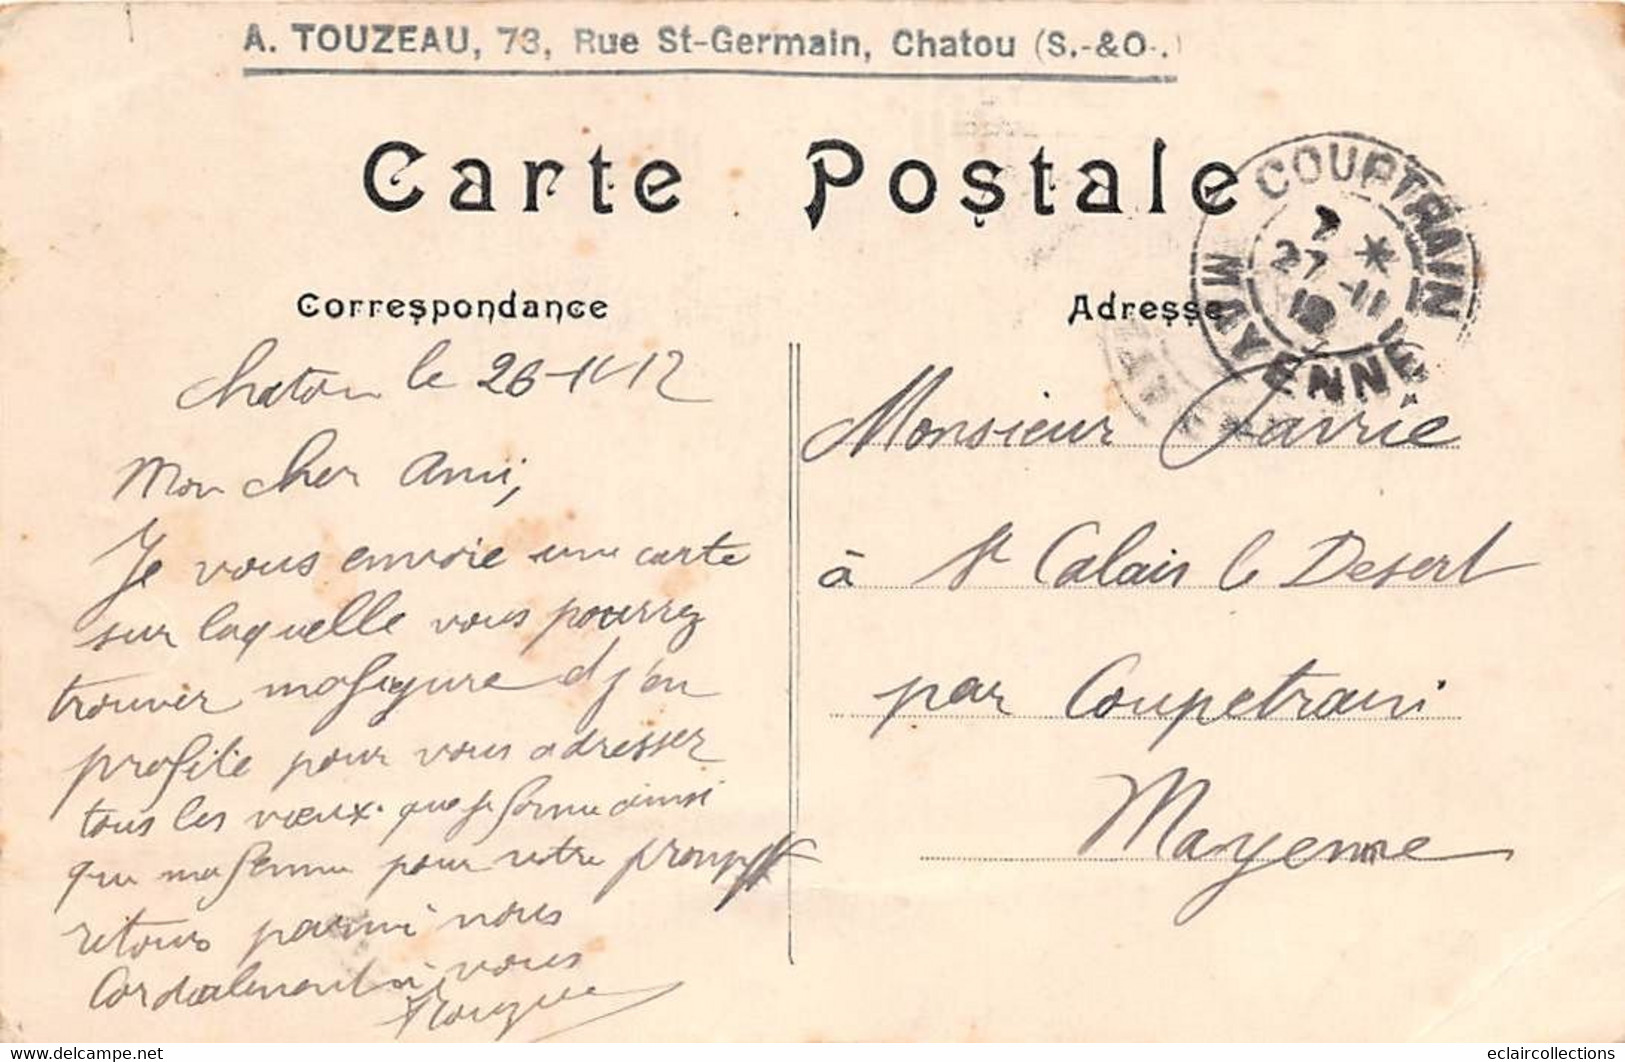 A. TOUZEAU, 73, Rue St-Germain, Chatou (S.-&O.)
Carte Postale
COUPTRAIN
7 *
27 -11
12
MAYENNE
Correspondance
Adresse
Chatou le 26-11-12
Mon cher Ami,
Je vous envoie une carte
sur laquelle vous pourrez
trouver ma figure et j'en
profite pour vous adresser
tous les vœux que je forme ainsi
que ma femme pour votre prompt
retour parmi nous
Cordialement à vous
Monsieur
à St Calais le Desert
par Coupetrain
Mayenne
eclaircollections